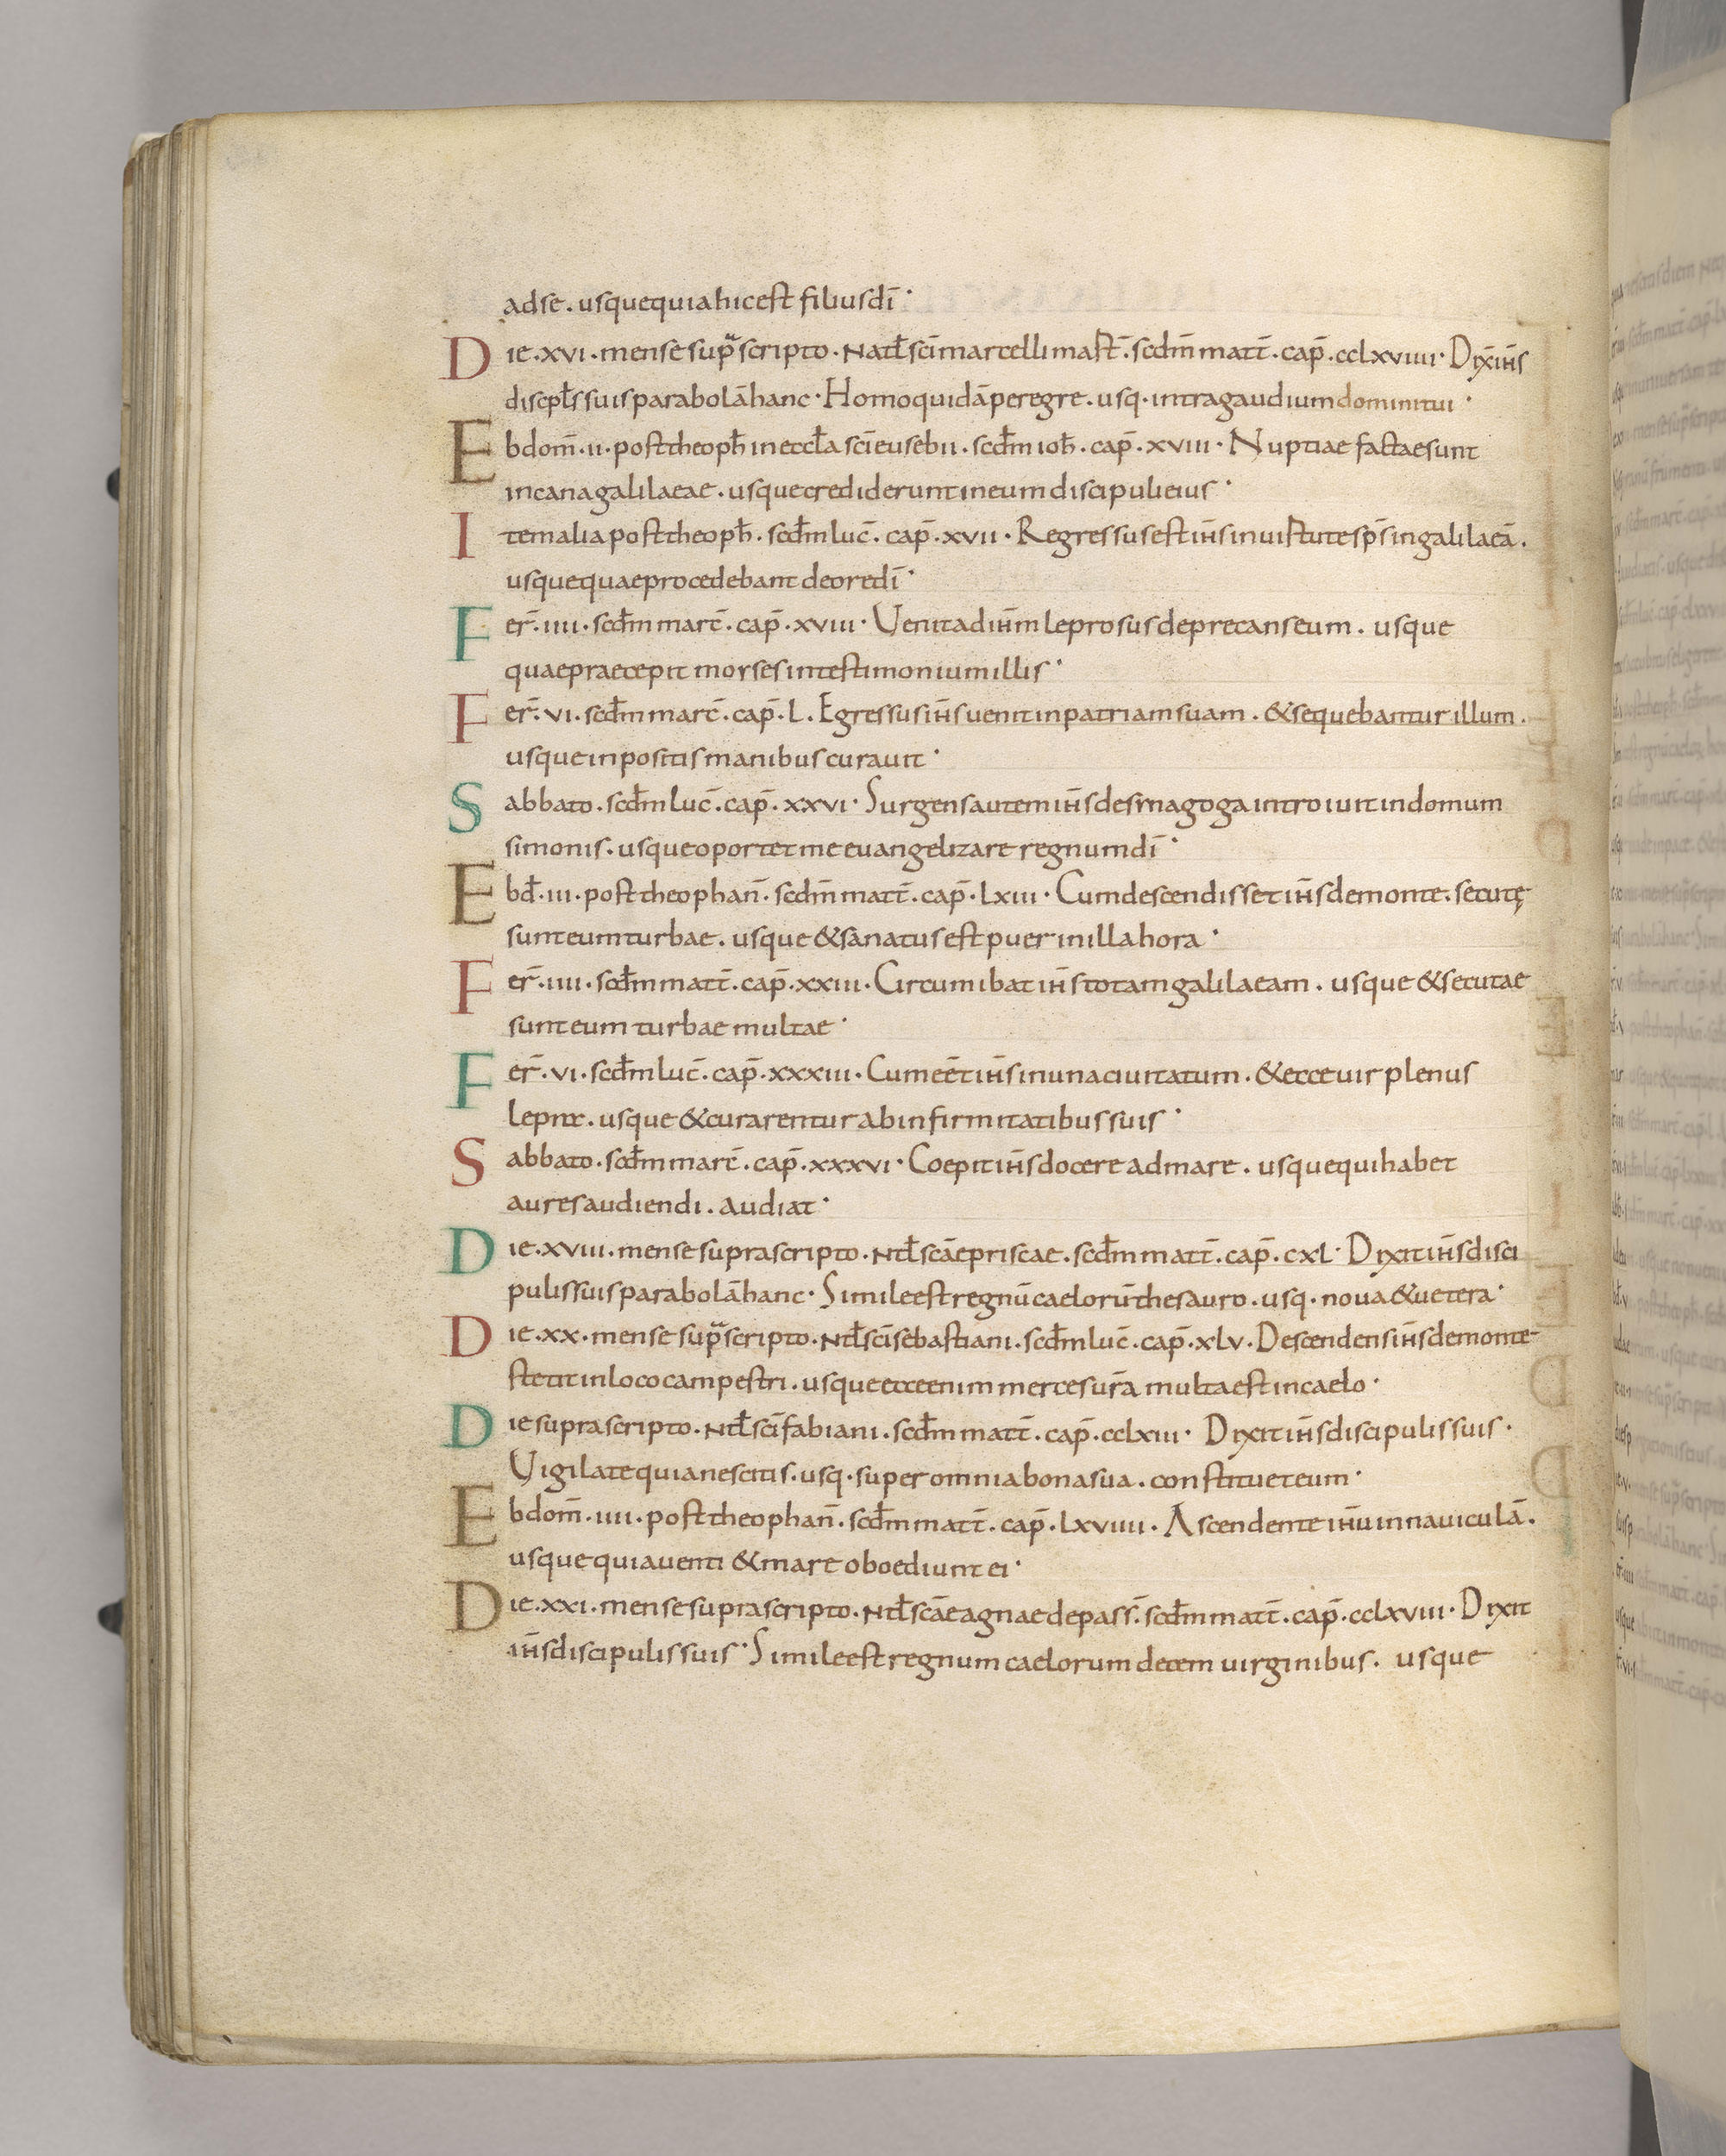 adse. usquequiahicest filiusdī·
Die·xvi·mense suprascripto·Natł scī marcelli mart̄· scđm matt̄·cap̄·cclxviiii· Dix̄ ih̄s
discipłs suis parabolā hanc· Homo quidā peregre. usq· intra gaudium domini tui·
Ebdom̄·ii·post theoph̄ in eccła scī eusebii· scđm ioh̄· cap̄·xviii· Nuptiae factae sunt
in cana galilaeae. usque crediderunt in eum discipuli eius·
Item alia post theoph̄· scđm luc̄· cap̄·xvii· Regressus est ih̄s in uirtute sp̄s in galilaeā.
usque quae procedebant de ore dī·
Fer̄·iiii· scđm marc̄· cap̄·xviii· Uenit ad ih̄m leprosus deprecans eum. usque
quae praecepit moyses in testimonium illis·
Fer̄·vi· scđm marc̄· cap̄·L· Egressus ih̄s uenit in patriam suam. & sequebantur illum.
usque inpositis manibus curauit·
Sabbato· scđm luc̄· cap̄·xxvi· Surgens autem ih̄s de synagoga introiuit in domum
simonis. usque oportet me euangelizare regnum dī·
Ebđ·iii·post theophan̄· scđm matt̄· cap̄·Lxiii· Cum descendisset ih̄s de monte. secutę
sunt eum turbae. usque & sanatus est puer in illa hora·
Fer̄·iiii· scđm matt̄· cap̄·xxiii· Circumibat ih̄s totam galilaeam. usque & secutae
sunt eum turbae multae·
Fer̄·vi· scđm luc̄· cap̄·xxxiii· Cum eēt ih̄s in una ciuitatum. & ecce uir plenus
lepra. usque & curarentur ab infirmitatibus suis·
Sabbato· scđm marc̄· cap̄·xxxvi· Coepit ih̄s docere ad mare. usque qui habet
aures audiendi. audiat·
Die·xviii·mense suprascripto·Ntł scāe priscae· scđm matt̄· cap̄·cxl· Dixit ih̄s disci
pulis suis parabolā hanc· Simile est regnū caelorū thesauro. usq· noua & uetera·
Die·xx·mense suprascripto·Ntł scī sebastiani· scđm luc̄· cap̄·xlv· Descendens ih̄s de monte
stetit in loco campestri. usque ecce enim merces ur̄a multa est in caelo·
Die suprascripto·Ntł scī fabiani· scđm matt̄· cap̄·cclxiii· Dixit ih̄s discipulis suis·
Uigilate quia nescitis. usq· super omnia bona sua. constituet eum·
Ebdom̄·iiii·post theophan̄· scđm matt̄· cap̄·lxviiii· Ascendente ih̄u in nauiculā.
usque quia uenti & mare oboediunt ei·
Die·xxi·mense suprascripto·Ntł scāe agnae de pass̄· scđm matt̄· cap̄·cclxviii· Dixit
ih̄s discipulis suis· Simile est regnum caelorum decem uirginibus. usque